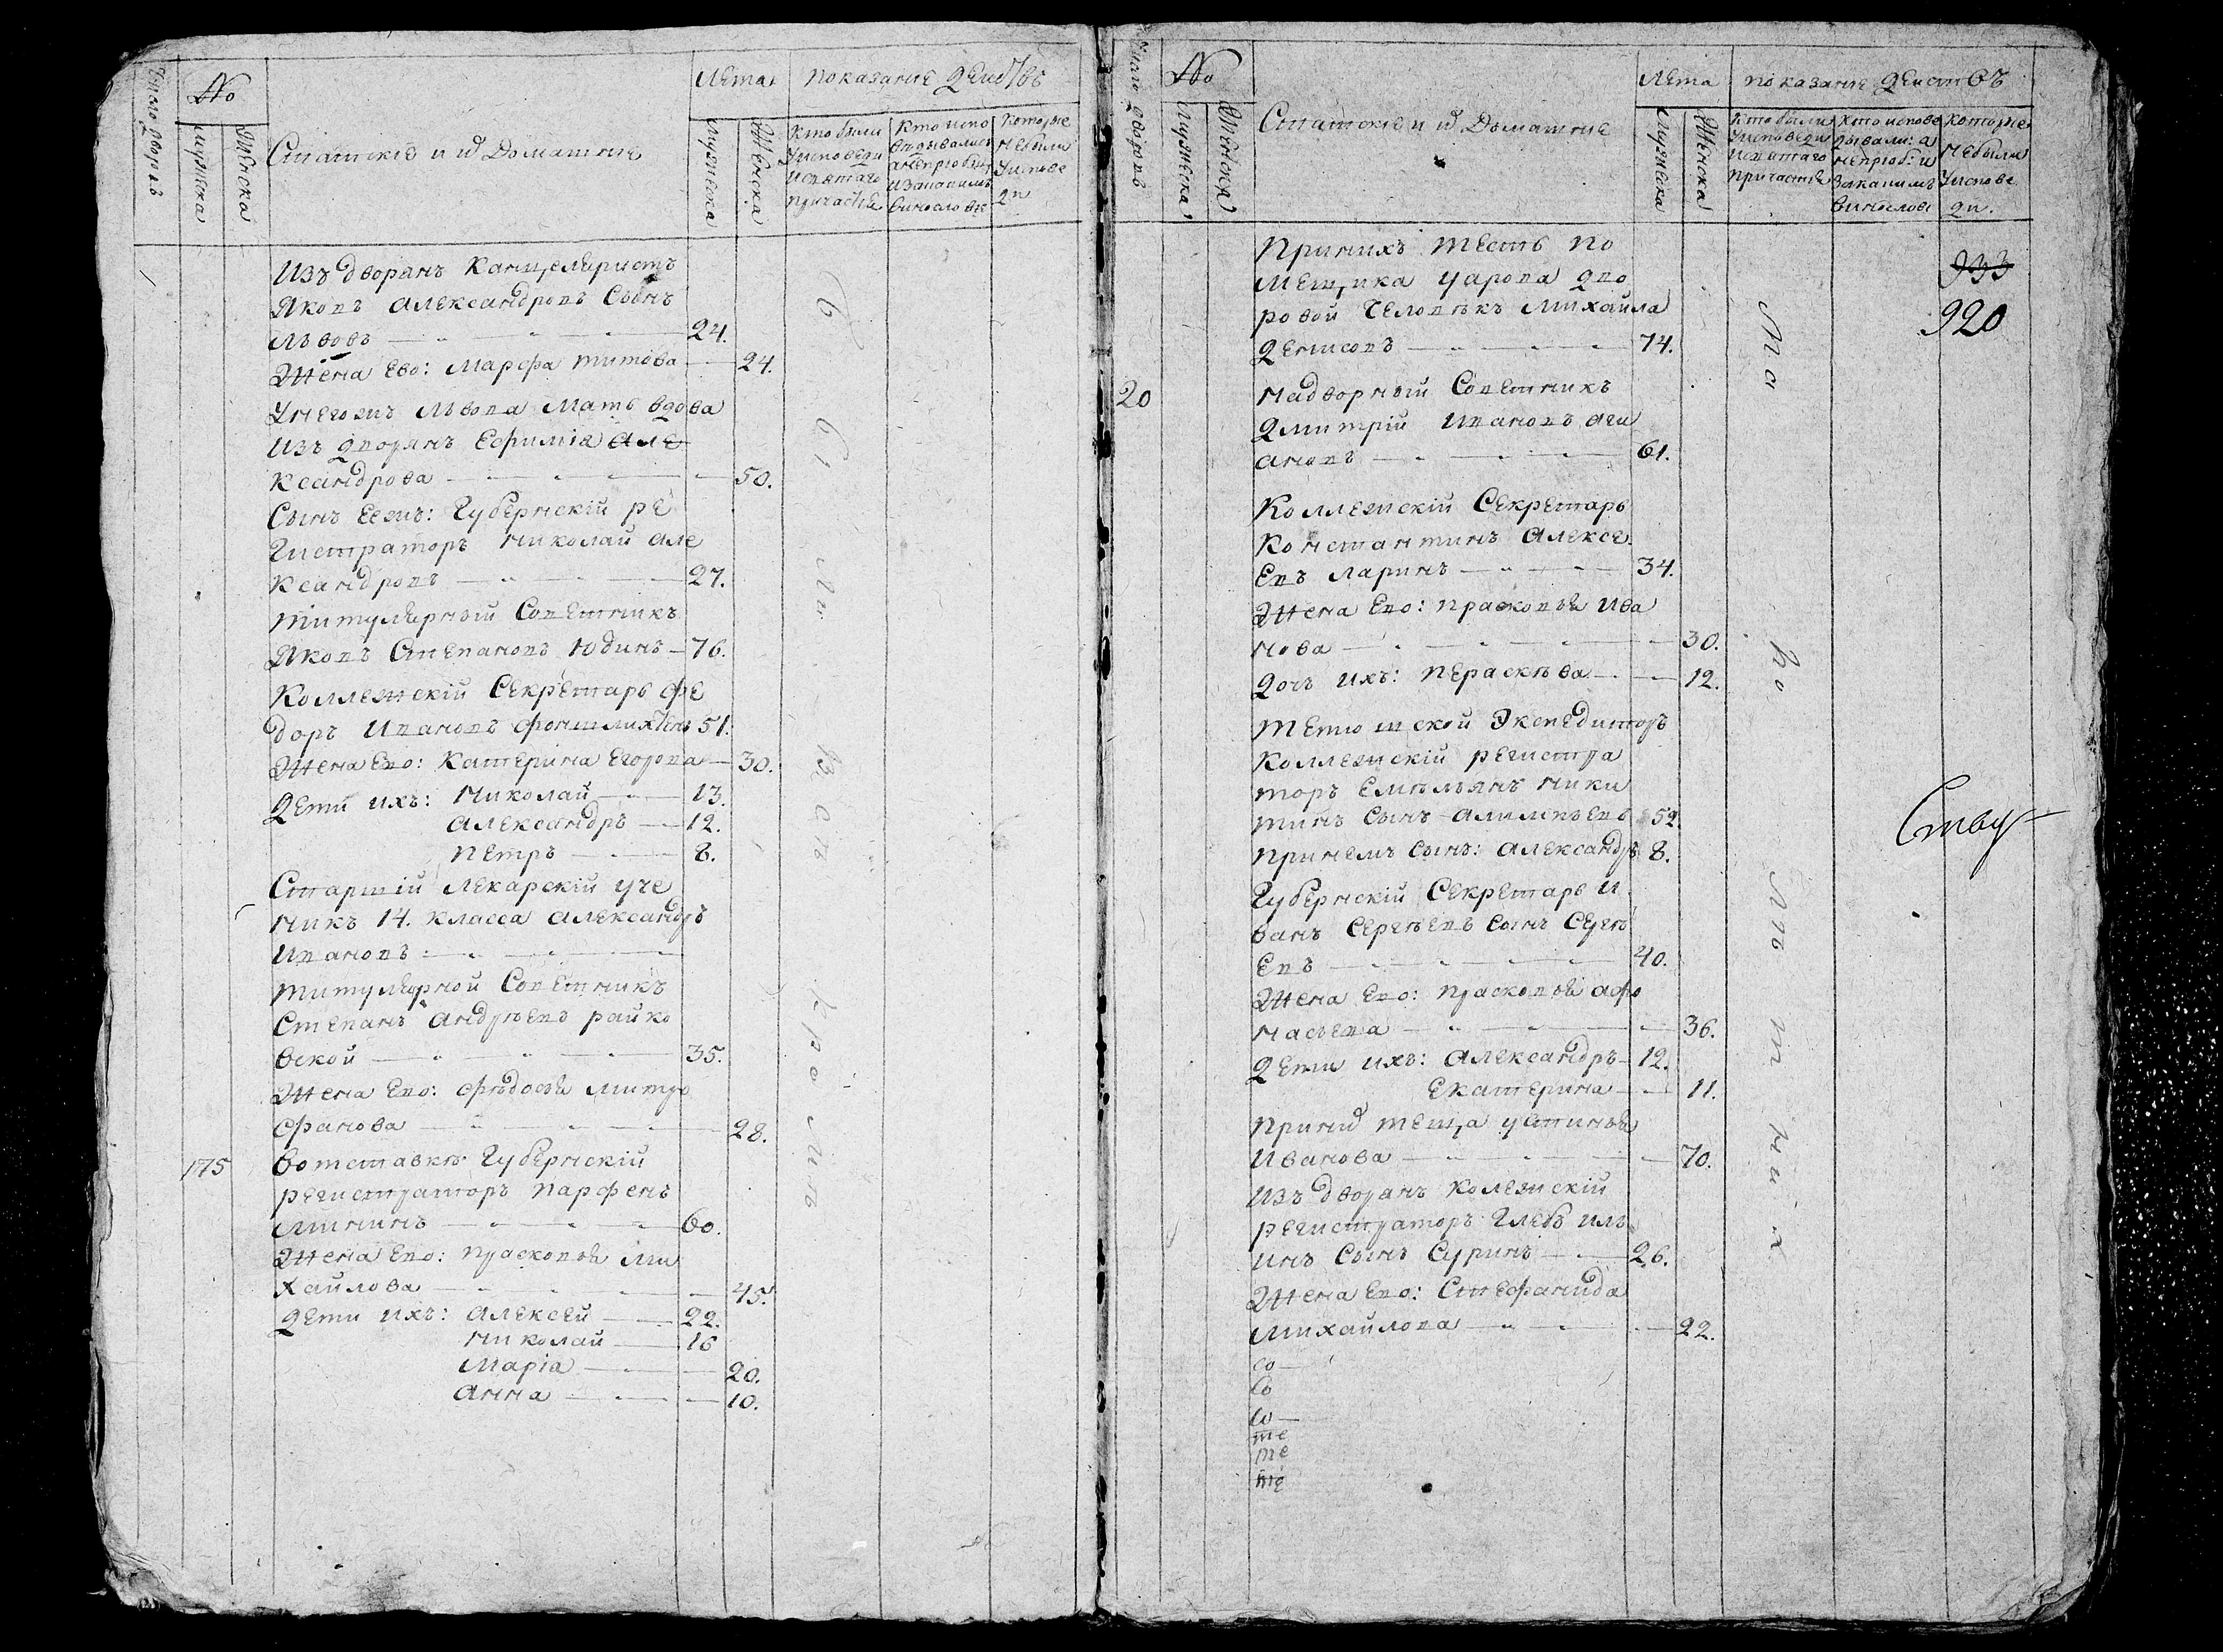 Число дворовъ
No
Мужеска
Женска
Статскіе и их Домашніе
Лета
Мужеска
Женска
показание Действъ
Кто были
у исповеди
и святаго
причастія
Кто испо
ведывались
а не приобщ
и за каким
винословіе
которые
не были
у испове
ди
Изъ дворянъ Канцеляристъ
Яковъ Александровъ Сынъ
Львовъ 24.
Жена Ево: Марфа Титова 24.
У негожъ Львова Мать вдова
Изъ дворянъ Ефимія Але
ксандрова 50.
Сынъ Еежъ: Губернскій ре
гистраторъ Николай Але
ксандровъ 27.
Титулярный Советникъ
Яковъ Степановъ Юдинъ 76.
Коллежскій Секретарь Фе
доръ Ивановъ 51.
Жена Ево: Катерина Егорова 30.
Дети ихъ: Николай 13.
Александръ 12.
Петръ 8.
Старшій Лекарскій уче
никъ 14. класса Александръ
Ивановъ
Титулярной Советникъ
Степанъ Андреевъ райко
вской 35.
Жена Ево: Федосья Митро
фанова 28.
175 В отставке Губернскій
регистраторъ Парфенъ
Мининъ 60.
Жена Ево: Прасковья Ми
хайлова 45.
Дети ихъ: Алексей 22.
Николай 16
Марія 20.
Анна 10.
Число дворовъ
No
Мужеска
Женска
Статскіе и их Домашніе
Лета
Мужеска
Женска
показание Действъ
Кто были
у исповеди
и святаго
причастія
Кто испове
дывали: а
не приоб: и
за каким
винослові
которые
не были
у испове
ди.
При нихъ тесть по
мещика Уарова дво
ровой Человекъ Михайла
Денисовъ 74.
933
920
20 Надворный Советникъ
Дмитрій Ивановъ Аги
ановъ 61.
Коллежскій Секретарь
Константинъ Алексе
евъ Ларинъ 34.
Жена Ево: Прасковья Ива
нова 30.
Дочь ихъ: Пераскева 12.
Тетюшской Экспедиторъ
Коллежскій регистра
торъ Емельянъ Ники
тинъ Сынъ 52.
При немъ сынъ: Александръ 8.
Губернскій Секретарь И
ванъ Сергеевъ Сынъ Серге
евъ 40.
Жена Ево: Прасковья Афо
насьева 36.
Дети ихъ: Александръ 12.
Екатерина 11.
При них теща Устинья
Иванова 70.
Изъ дворянъ Колежскій
регистраторъ Глебъ Иль
инъ Сынъ Суринъ 26.
Жена Ево: Стефанида
Михайлова 22.
со
Со
Со
те
те
те